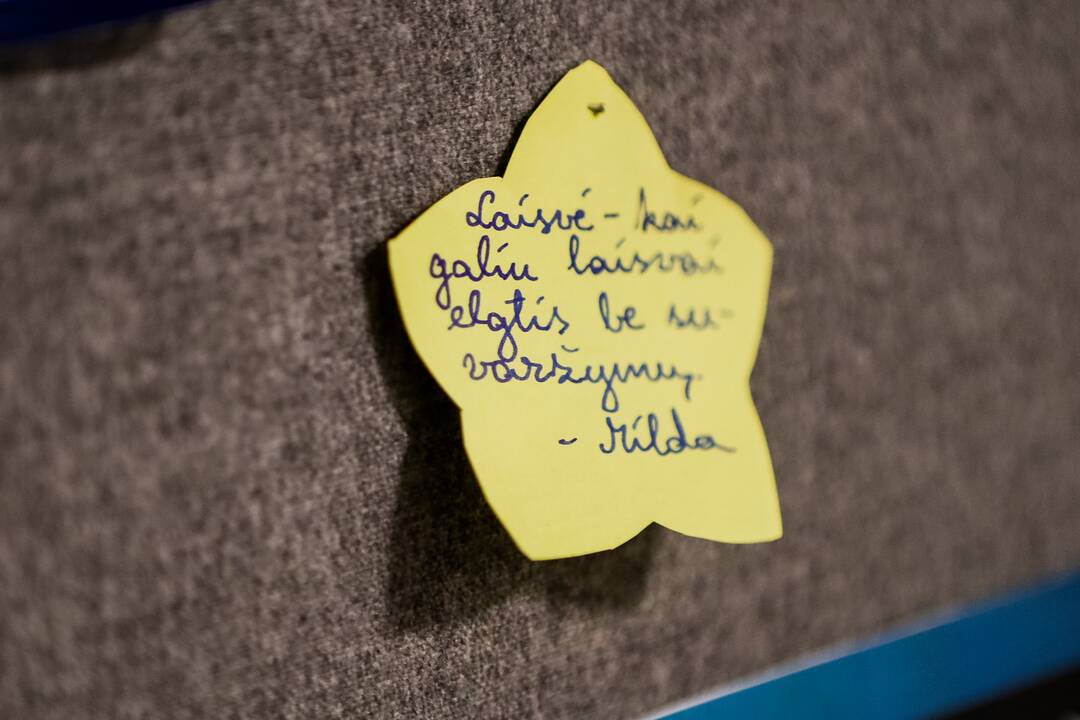 Laisvė - kai
galiu laisvai
elgtis be su-
varžymų.
- Milda